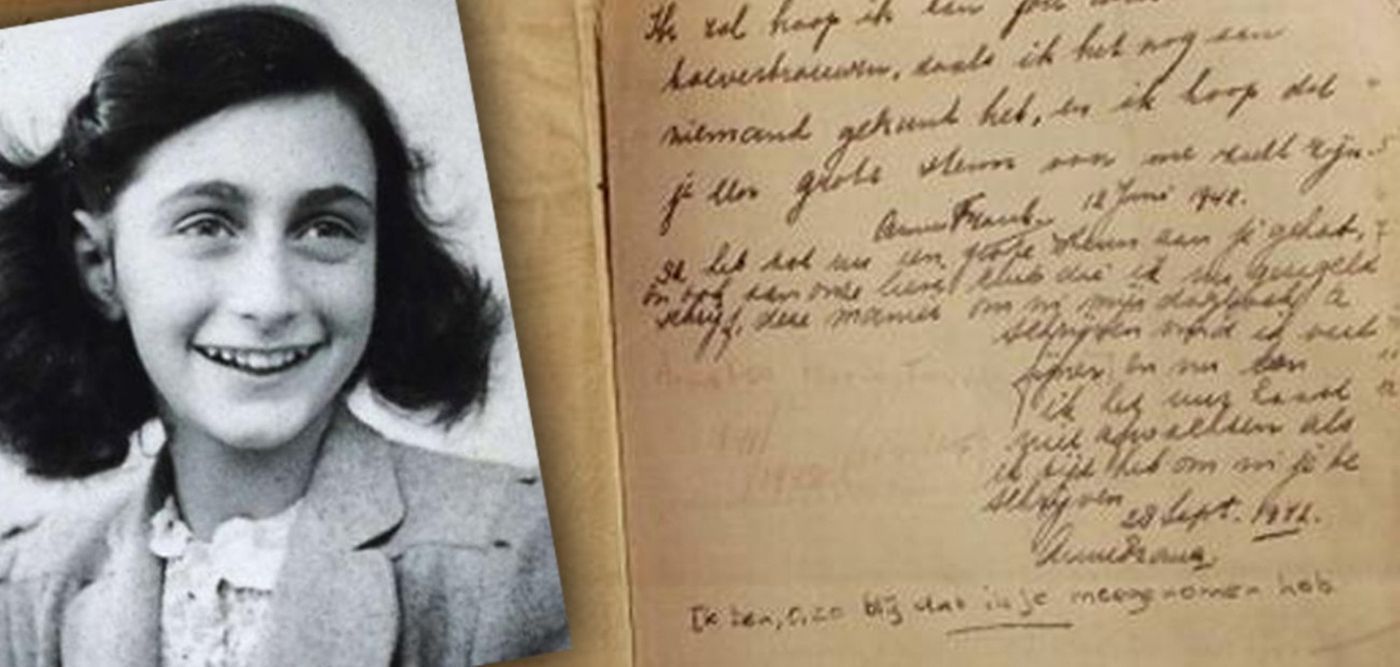 Ik zal hoop ik aan jou
toevertrouwen, zoals ik het nog aan
niemand gekund heb, en ik hoop dat
je een grote steun voor me zult zijn.
Anne Frank. 12 Juni 1942.
Ik heb tot nu een grote steun aan je gehad,
en ook aan onze lieve club die ik nu geregeld
schrijf, deze manier om in mijn dagboek te
schrijven vind ik veel
fijner en nu kan
ik het uur haast
niet afwachten als
ik tijd heb om in je te
schrijven.
28 Sept. 1942.
Anne Frank.
Ik ben, o, zo blij dat ik je meegenomen heb